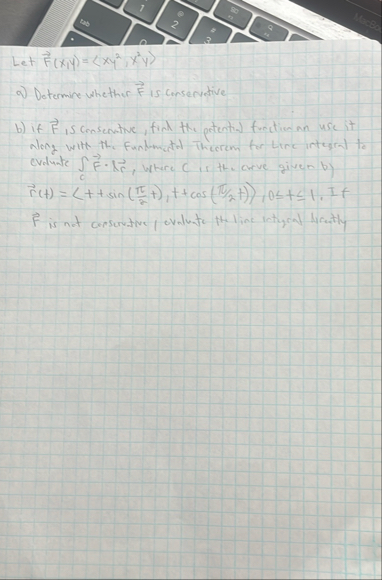 tab
1
2
3
Let F⃗(x,y) = ⟨xy², x²y⟩
a) Determine whether F⃗ is conservative
b) if F⃗ is conservative, find the potential function an use it
along with the Fundamental Theorem for Line integral to
evaluate ∫_C F⃗ · dr⃗, where C is the curve given by
r⃗(t) = ⟨t + sin(π/2 t), t + cos(π/2 t)⟩, 0 ≤ t ≤ 1. If
F⃗ is not conservative, evaluate the line integral directly